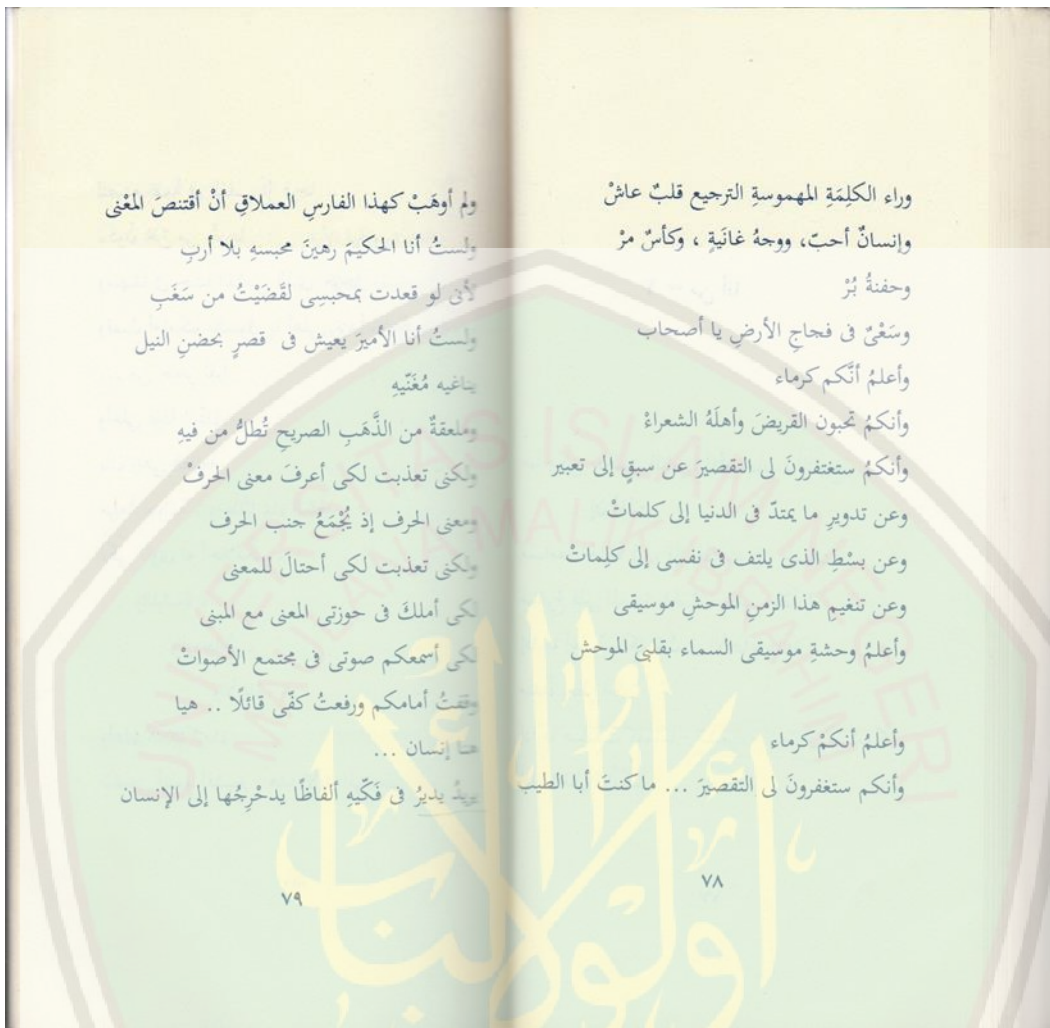 وراء الكلِمَةِ المهموسةِ الترجيع قلبٌ عاشْ
وإنسانٌ أحبّ، ووجهُ غانَيةٍ ، وكأسٌ مرْ
وحفنةُ بُرْ
وسَعْىٌ فى فجاجِ الأرضِ يا أصحاب
وأعلمُ أنَّكم كرماء
وأنكمُ تحبون القريضَ وأهلَهُ الشعراءْ
وأنكمُ ستغتفرونَ لى التقصيرَ عن سبقٍ إلى تعبير
وعن تدويرِ ما يمتدّ فى الدنيا إلى كلماتْ
وعن بسْطِ الذى يلتف فى نفسى إلى كلِماتْ
وعن تنغيمِ هذا الزمنِ الموحشِ موسيقى
وأعلمُ وحشةِ موسيقى السماء بقلبىَ الموحش
وأعلمُ أنكمْ كرماء
وأنكم ستغفرونَ لى التقصيرَ ... ما كنتَ أبا الطيب
٧٨
ولم أوهَبْ كهذا الفارسِ العملاقِ أنْ أقتنصَ المعْنى
ولستُ أنا الحكيمَ رهينَ محبسهِ بلا أربِ
لأنى لو قعدت بمحبسِى لقَضَيْتُ من سَغَبِ
ولستُ أنا الأميرَ يعيش فى قصرٍ بحضنِ النيل
يناغيه مُغَنّيهِ
وملعقةٌ من الذَّهَبِ الصريحِ تُطلُّ من فيهِ
ولكنى تعذبت لكى أعرفَ معنى الحرفْ
ومعنى الحرف إذ يُجْمَعُ جنب الحرف
ولكنى تعذبت لكى أحتالَ للمعنى
لكى أملكَ فى حوزتى المعنى مع المبنى
لكى أسمعكم صوتى فى مجتمع الأصواتْ
وقفتُ أمامكم ورفعتُ كفّى قائلًا .. هيا
هنا إنسان ...
يريدُ يديرُ فى فَكّيهِ ألفاظًا يدحْرِجُها إلى الإنسان
٧٩
UNIVERSITAS ISLAM NEGERI
MAULANA MALIK IBRAHIM
أولوا الألباب